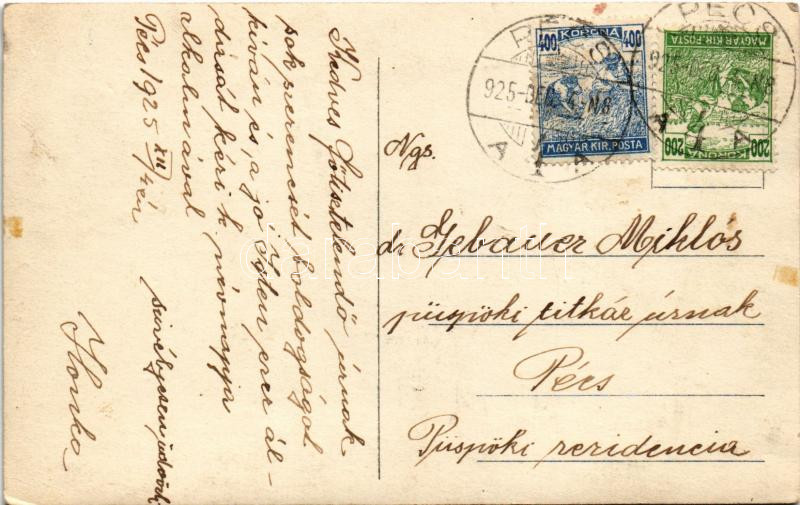 Kedves Főtisztelendő úrnak
sok szerencsét, boldogságot
kíván és a jó Isten ezer ál-
dását kéri b. névnapja
alkalmával
Pécs 1925 XII/4 én
Honka
400 KORONA 400
MAGYAR KIR. POSTA
200 KORONA 200
MAGYAR KIR. POSTA
PÉCS
925-DEC
PÉCS
Ngs.
dr Gebauer Miklós
püspöki titkár úrnak
Pécs
Püspöki rezidencia